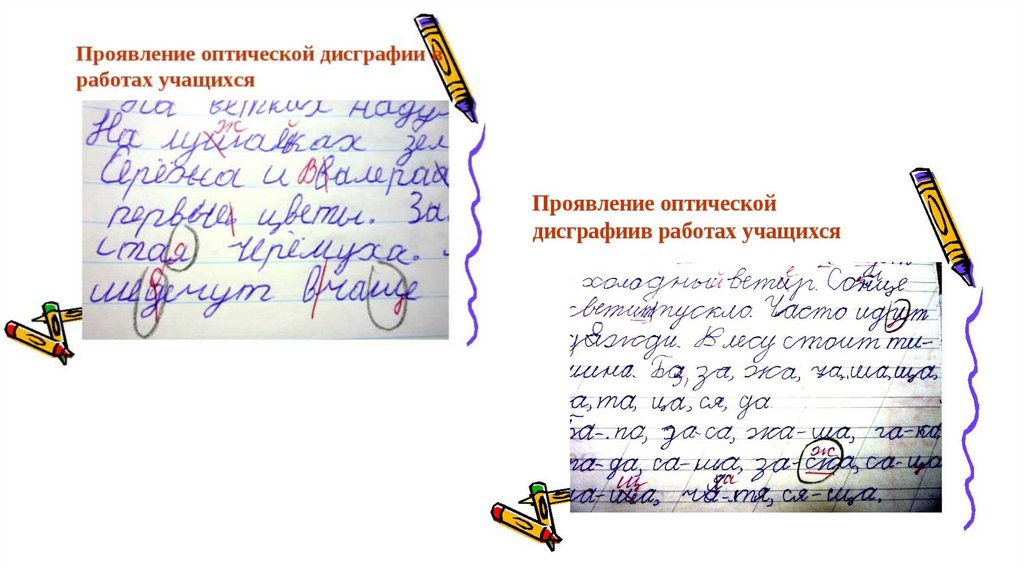 Проявление оптической дисграфии в
работах учащихся
ветких наду
На лужайках зел
Серёжа и Валера
первые цветы. За
стая черёмуха.
в чаще
Проявление оптической
дисграфиив работах учащихся
холодный ветер. Солнце
светит пускло. Часто идут
дожди. В лесу стоит ти-
шина. Ба, за, жа, ча, ша, ща,
а, та, ца, ся, да.
ба-па, за-са, жа-ша, га-ка,
та-да, са-ша, за-сжа, са-ца
ча-тя, ся-ща.